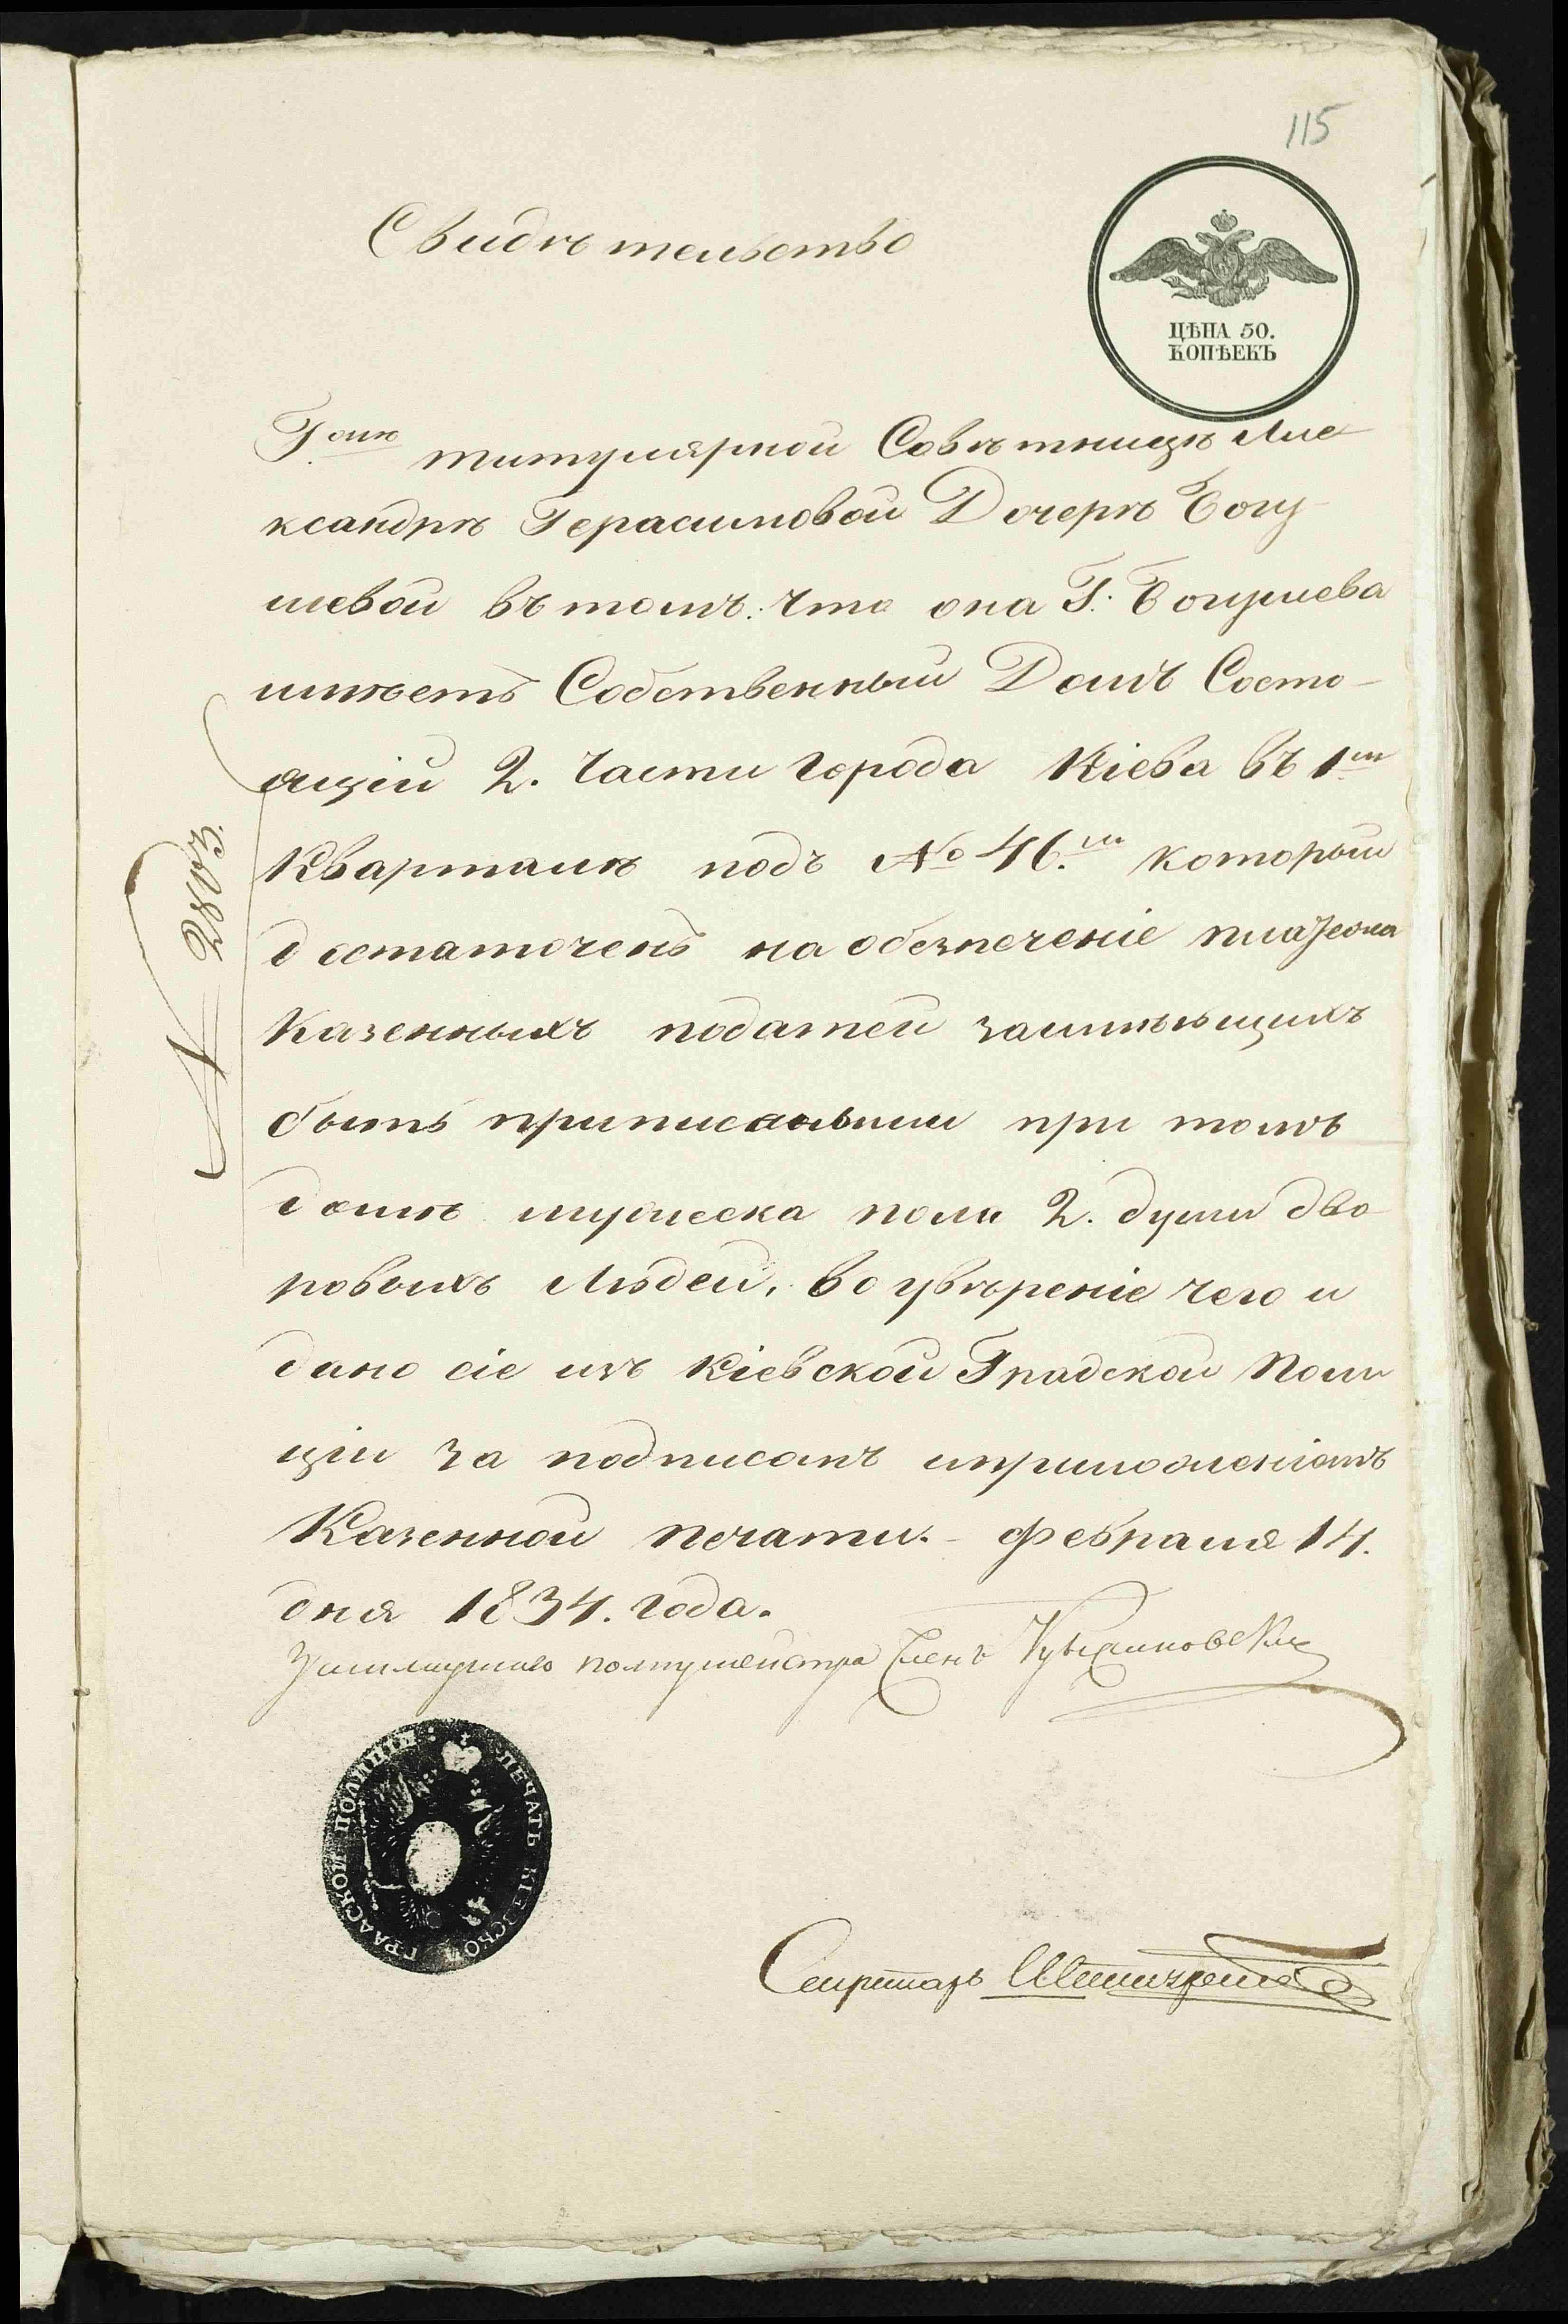 115
Свидѣтельство
ЦѢНА 50.
КОПѢЕКЪ
Г.ожѣ титулярной Совѣтницѣ Але
ксандрѣ Герасимовой Дочерѣ Богу-
шевой въ томъ: что она Г: Богушева
имѣетъ Собственный Домъ Состо-
ящій 2. Части города Кіева въ 1м
Кварталѣ подъ № 46.м который
достаточенъ на обезпеченіе платежа
Казенныхъ податей заимѣющихъ
быть приписанными при томъ
домѣ мужеска пола 2. души дво
ровыхъ Людей, во увѣреніе чего и
дано сіе изъ Кіевской Градской Поли
ціи за подписомъ иприложеніемъ
Казенной печати. - Февраля 14.
дня 1834. года.
№ 2803.
полицмейстра Членъ
ПЕЧАТЬ КІЕВСКОЙ ГРАДСКОЙ ПОЛИЦІИ
Секретарь